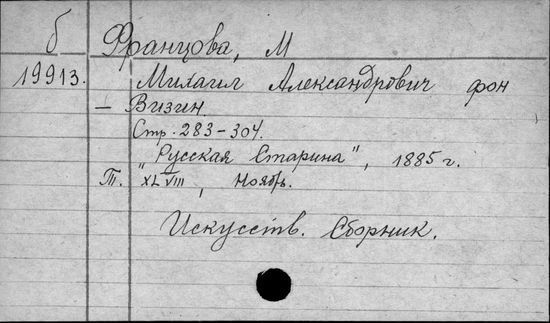 б Францова, М
19913. Михаил Александрович фон
– Визин.
Стр. 283–304.
"Русская Старина", 1885 г.
Т. XLVIII, Ноябрь.
Искусств. Сборник.